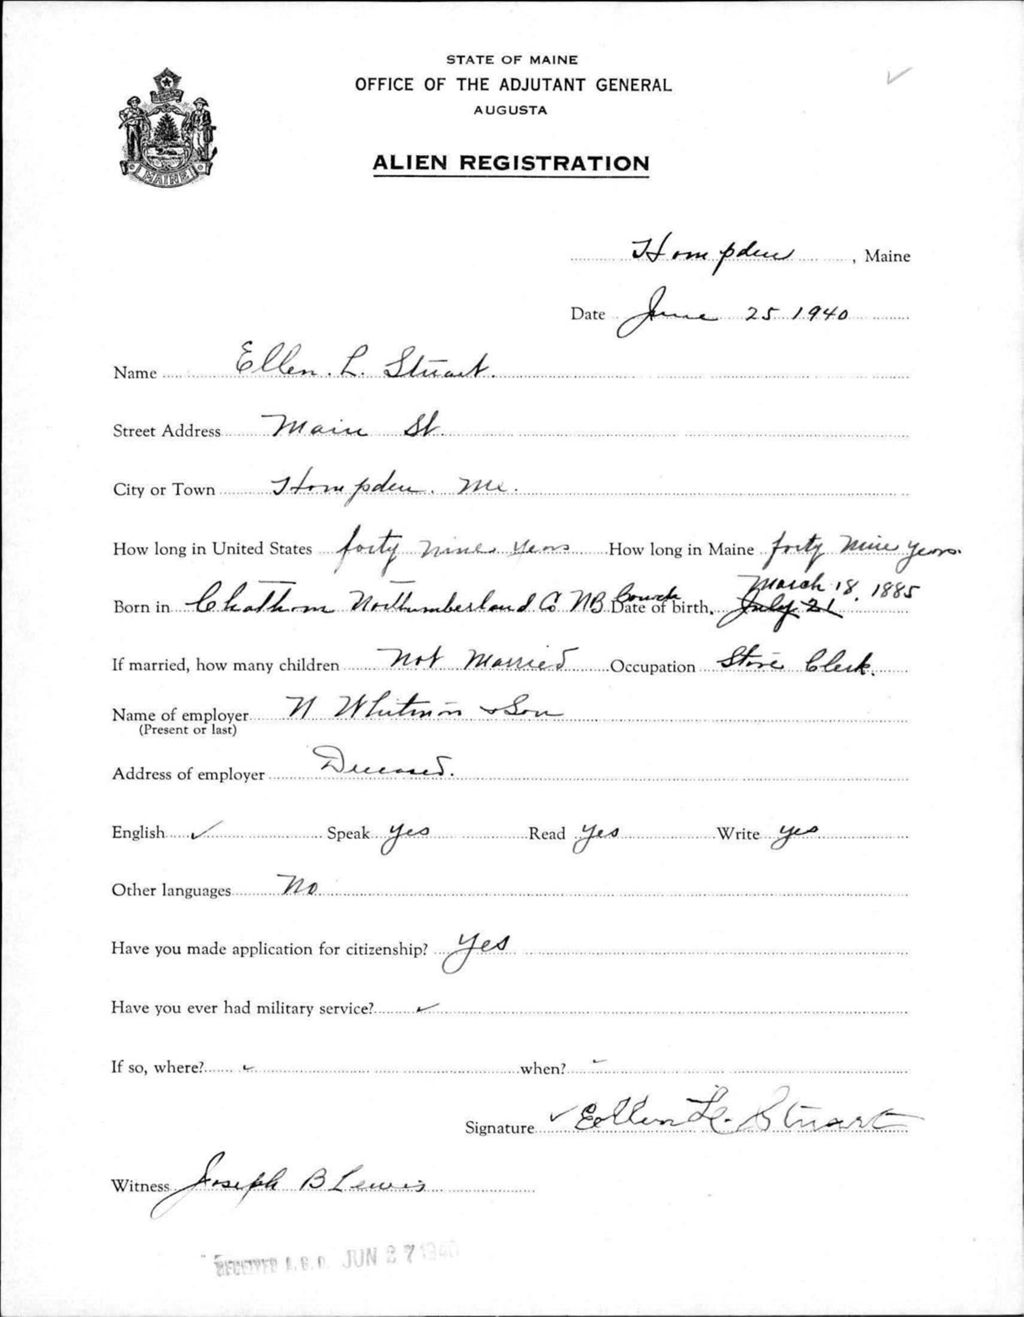 STATE OF MAINE
OFFICE OF THE ADJUTANT GENERAL
AUGUSTA
ALIEN REGISTRATION
MAINE
Hampden, Maine
Date June 25 1940
Name Ellen. L. Stuart.
Street Address Main St.
City or Town Hampden. Me.
How long in United States forty nine years How long in Maine forty nine years.
March 18, 1885
Born in Chatham Northumberland Co. NB Date of birth. July 21
If married, how many children Not Married Occupation Store Clerk.
Name of employer N Whitman & Son
(Present or last)
Address of employer Deceased.
English ✓ Speak yes Read yes Write yes
Other languages No
Have you made application for citizenship? Yes
Have you ever had military service? ✓
If so, where? ✓ when?
Signature ✓ Ellen L. Stuart
Witness Joseph B Lewis
RECEIVED A. G. O. JUN 27 1940